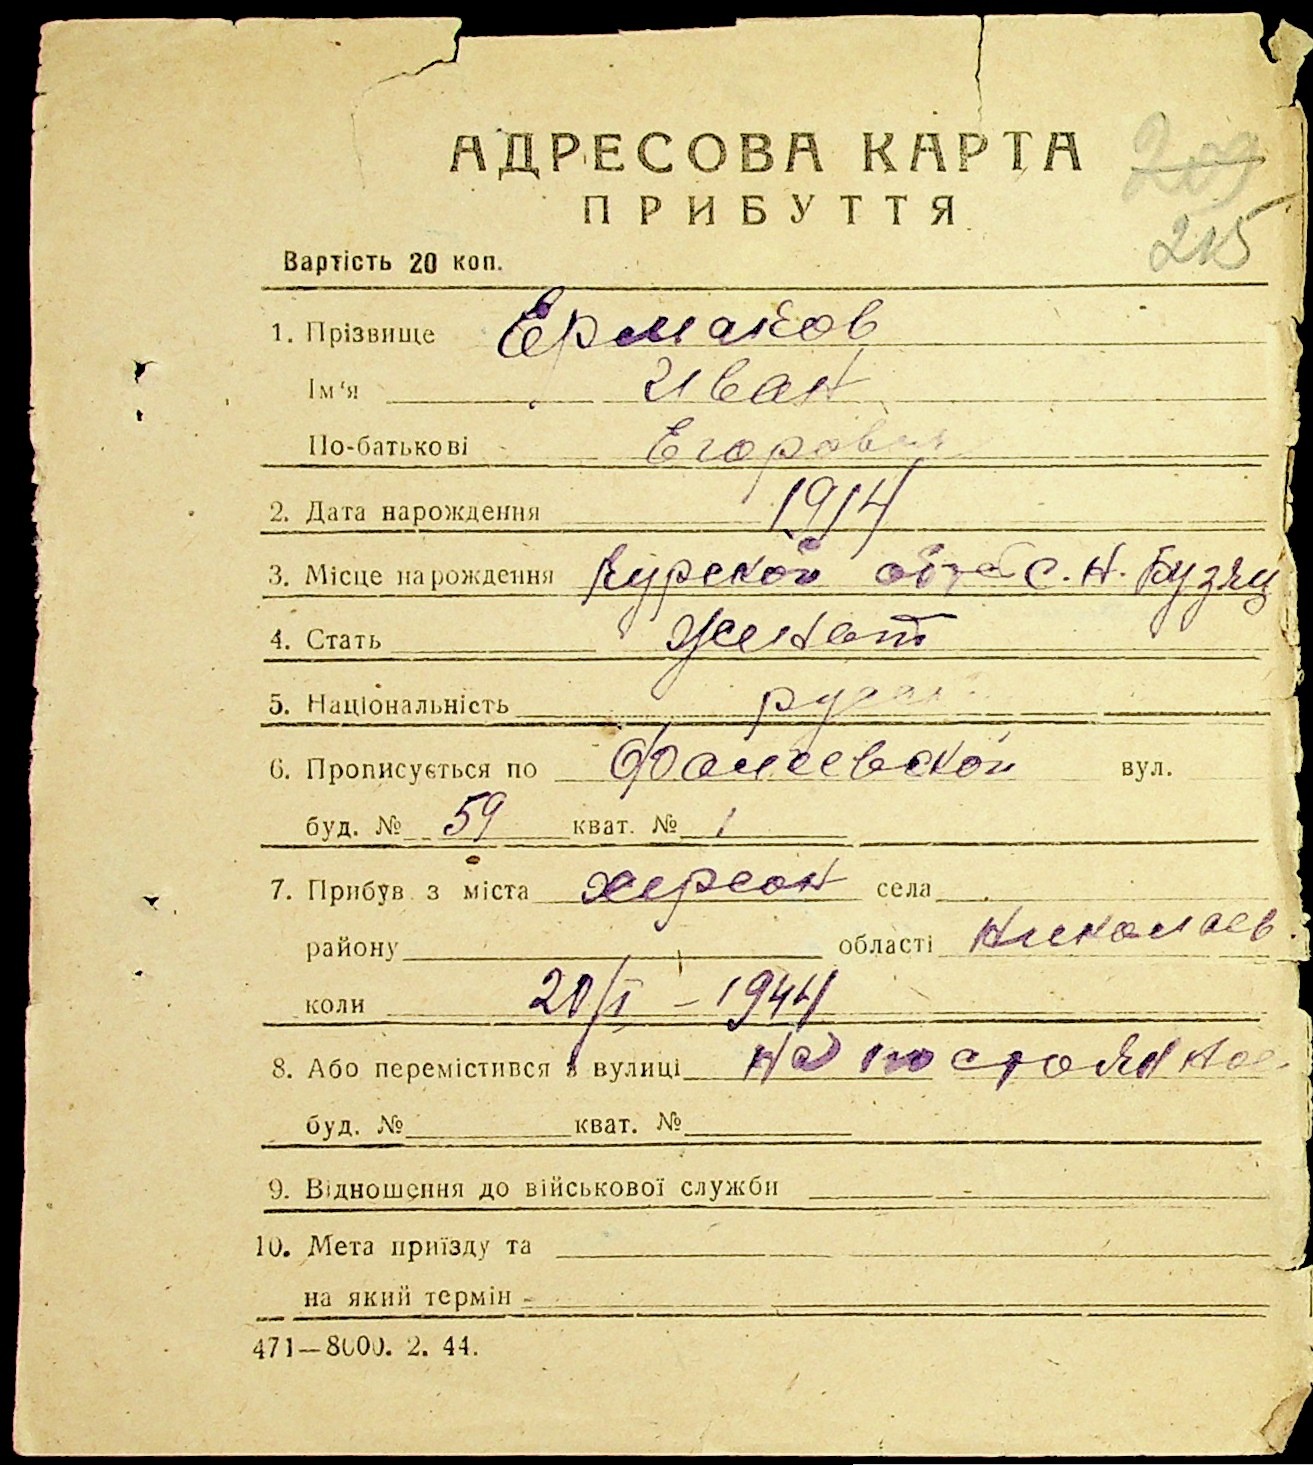 АДРЕСОВА КАРТА
209
ПРИБУТТЯ
215
Вартість 20 коп.
1. Прізвище Ермаков
Ім'я Иван
По-батькові Егорович
2. Дата нарождення 1914
3. Місце нарождення Курской обл. с. Н.
4. Стать женат
5. Національність
6. Прописується по Фалеевской вул.
буд. № 59 кват. № 1
7. Прибув з міста херсон села
району області Николаев.
коли 20/I – 1944
8. Або перемістився з вулиці на постоянное
буд. № кват. №
9. Відношення до військової служби
10. Мета приїзду та
на який термін
471—8000. 2. 44.